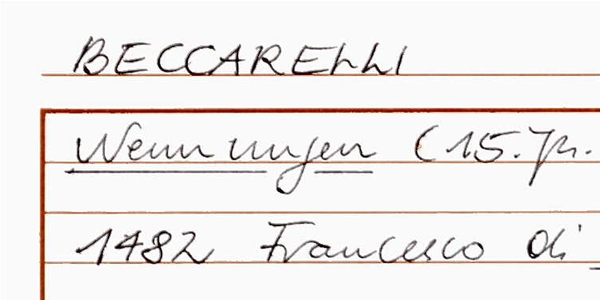 BECCARELLI
Nennungen (15. Jh.
1482 Francesco di